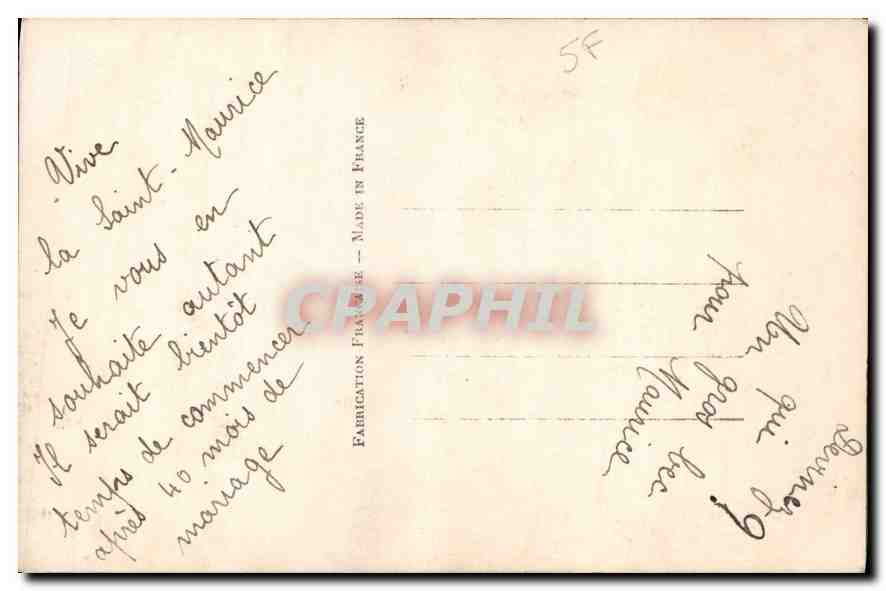 Vive
la Saint-Maurice
Je vous en
souhaite autant
Il serait bientôt
temps de commencer
après 40 mois de
mariage
FABRICATION FRANÇAISE — MADE IN FRANCE
5F
CPAPHIL
Un gros bec
pour Maurice
qui ?
Devinez